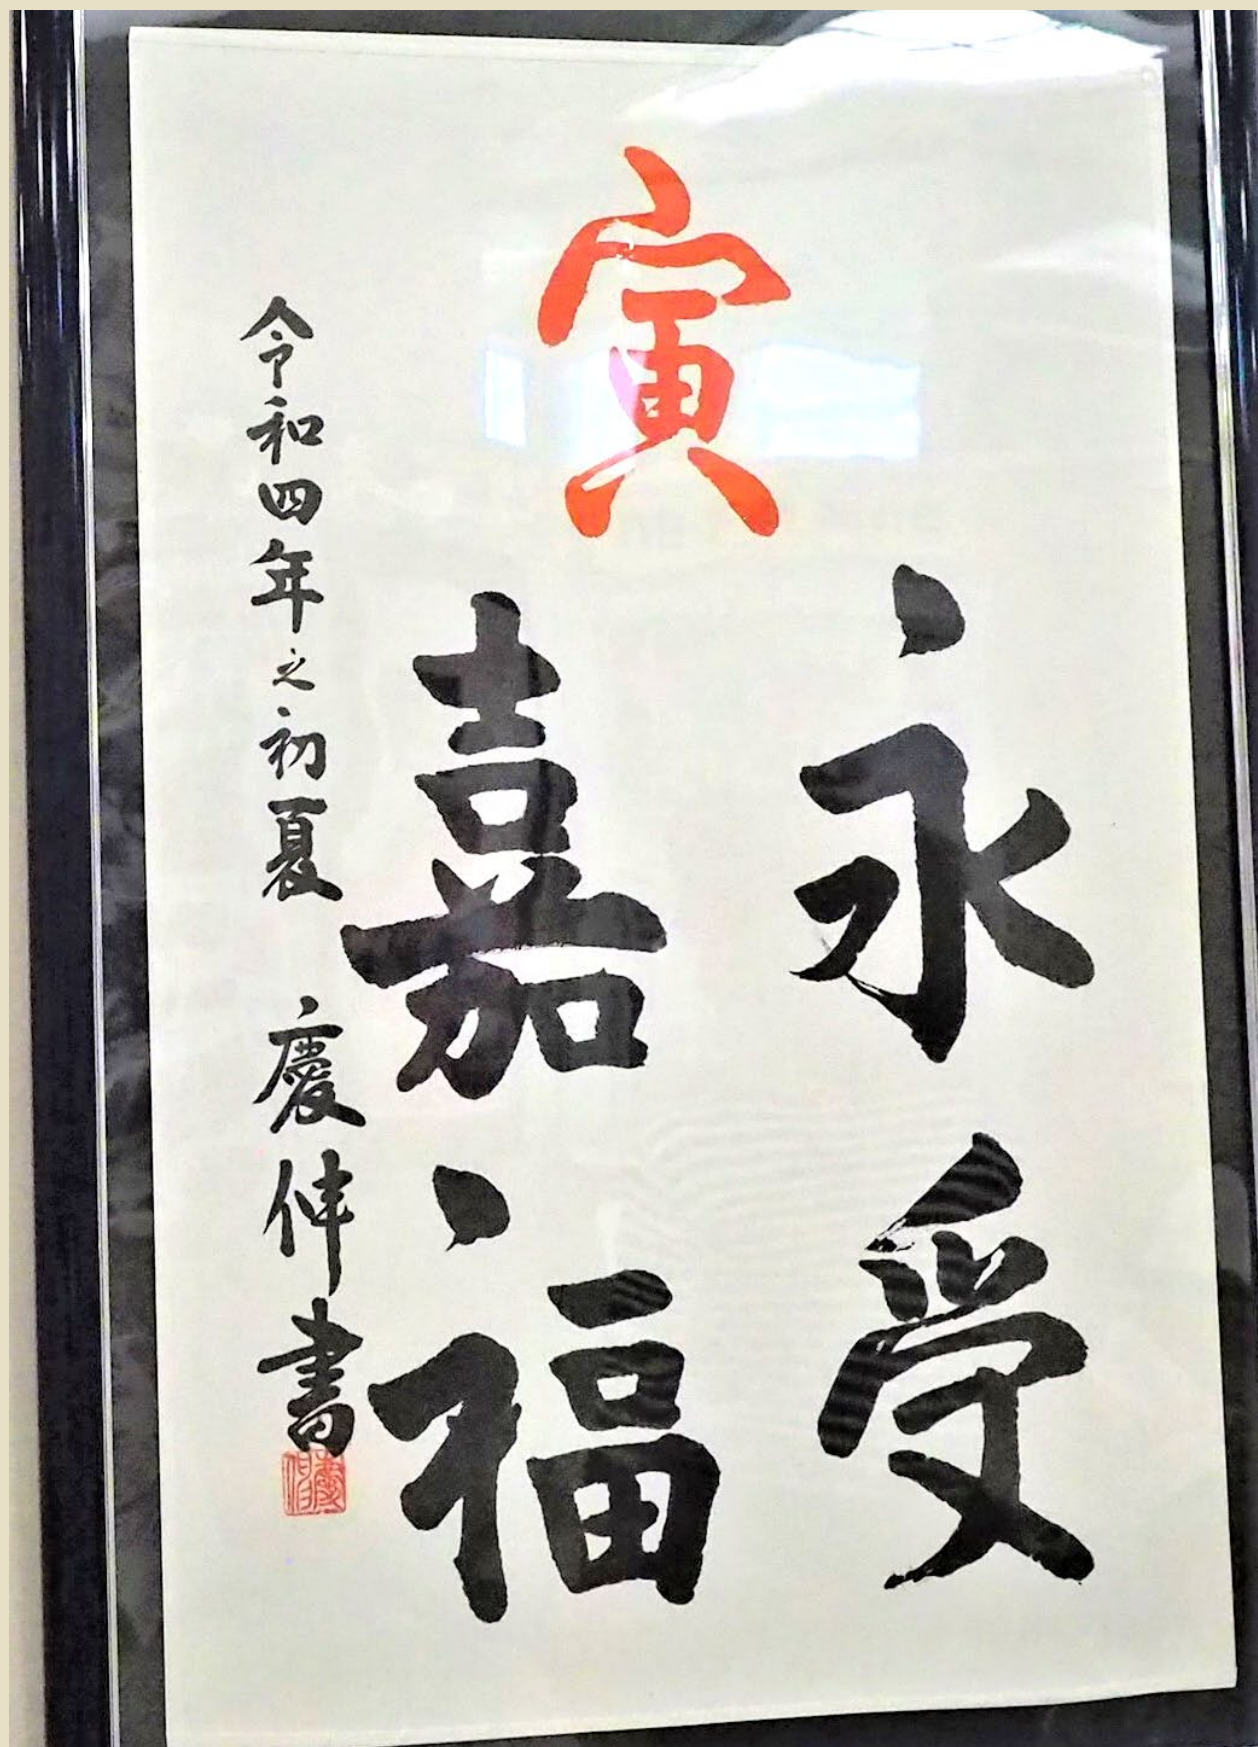 寅
永受
嘉福
令和四年之初夏 慶伸書